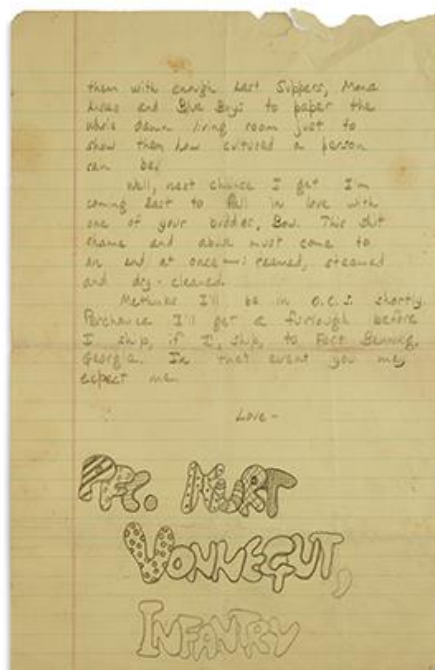 them with enough Last Suppers, Mona
Lisas and Blue Boys to paper the
whole damn living room just to
show them how cultured a person
can be.
Well, next chance I get I'm
coming East to fall in love with
one of your buddies, Bow. This
shame and abuse must come to
an end at once reamed, steamed
and dry-cleaned.
Methinks I'll be in O.C.S. shortly.
Perchance I'll get a furlough before
I ship, if I ship, to Fort Benning,
Georgia. In that event you may
expect me.
Love-
Pfc. KURT
VONNEGUT,
INFANTRY